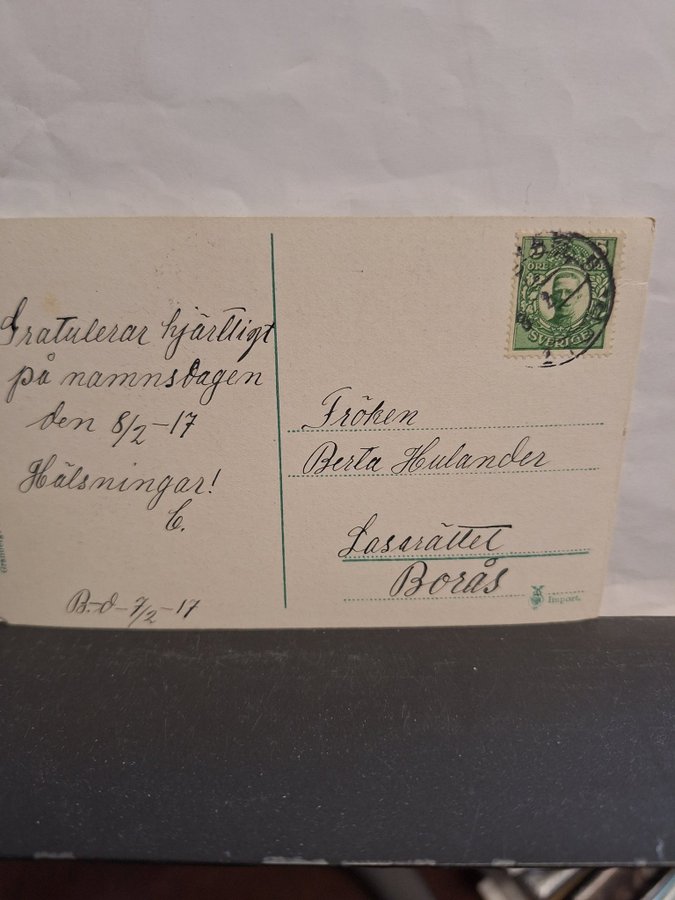 Gratulerar hjärtligt
på namnsdagen
den 8/2-17
Hälsningar!
C.
B-d-7/2-17
5
ÖRE
SVERIGE
Fröken
Berta Hulander
Lasarättet
Borås
Import.